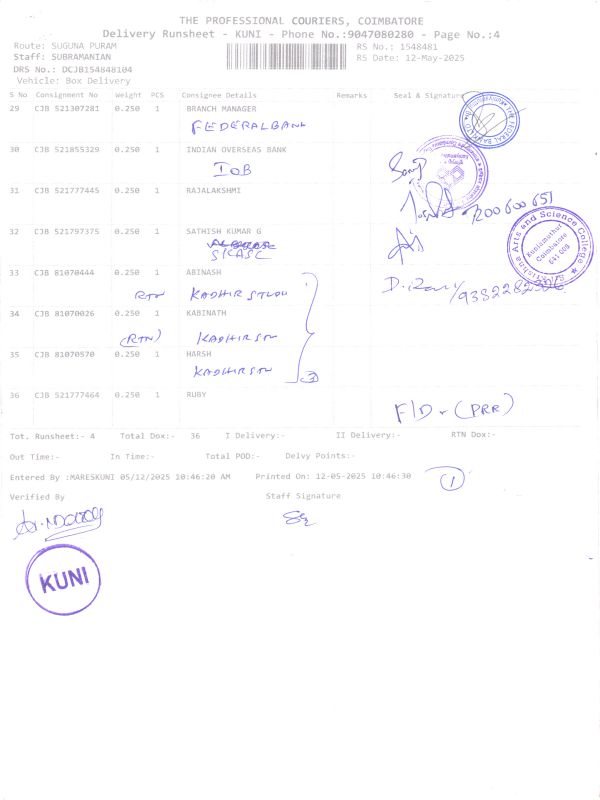 THE PROFESSIONAL COURIERS, COIMBATORE
Delivery Runsheet - KUNI - Phone No.:9047080280 - Page No.;4
Route: SUGUNA PURAM
RS No.: 1548481
Staff: SUBRAMANIAN
RS Date: 12-May-2025
DRS No.: DCJB154848104
Vehicle: Box Delivery
S No Consignment No Weight PCS Consignee Details Remarks Seal & Signature
29 CJB 521307281 0.250 1 BRANCH MANAGER
FEDERALBANK
30 CJB 521855329 0.250 1 INDIAN OVERSEAS BANK
IOB
31 CJB 521777445 0.250 1 RAJALAKSHMI
32 CJB 521797375 0.250 1 SATHISH KUMAR G
SKASC
Krishna Arts and Science College
Kuniamuthur
Coimbatore
641 008
33 CJB 81070444 0.250 1 ABINASH
RTN KADHIR
34 CJB 81070026 0.250 1 KABINATH
(RTN) KADHIRSTN
35 CJB 81070570 0.250 1 HARSH
KADHIRSTN
3
36 CJB 521777464 0.250 1 RUBY
F/D (PRR)
Tot. Runsheet:- 4 Total Dox:- 36 I Delivery:- II Delivery:- RTN Dox:-
Out Time:- In Time:- Total POD:- Delvy Points:-
Entered By :MARESKUNI 05/12/2025 10:46:20 AM Printed On: 12-05-2025 10:46:30
1
Verified By Staff Signature
KUNI